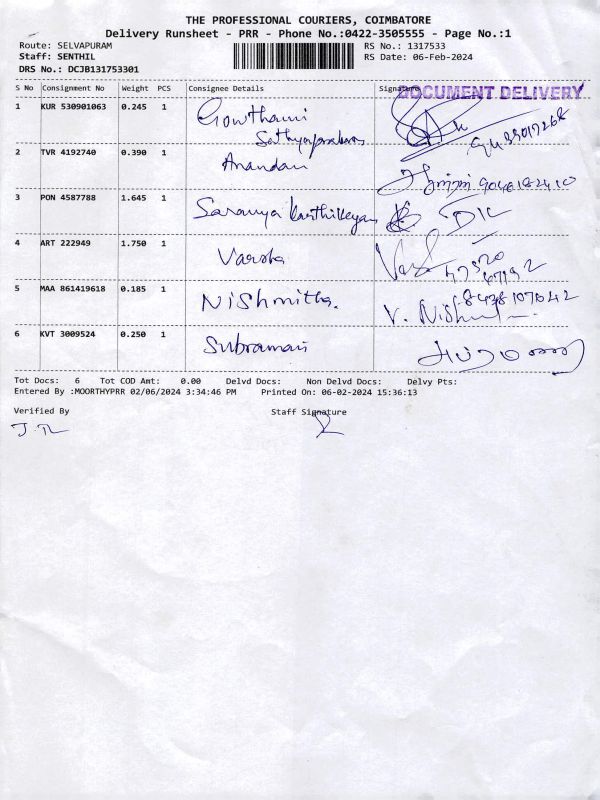 THE PROFESSIONAL COURIERS, COIMBATORE
Delivery Runsheet - PRR - Phone No.:0422-3505555 - Page No.:1
Route: SELVAPURAM RS No.: 1317533
Staff: SENTHIL RS Date: 06-Feb-2024
DRS No.: DCJB131753301
S No Consignment No Weight PCS Consignee Details Signature DOCUMENT DELIVERY
1 KUR 530901063 0.245 1 Gowthami
Sathyaprakash
2 TVR 4192740 0.390 1 Anandan
3 PON 4587788 1.645 1 Saranya Karthikeyan
4 ART 222949 1.750 1 Varsha
5 MAA 861419618 0.185 1 Nishmitha. 8438107042
V. Nishmitha
6 KVT 3009524 0.250 1 Subramani
Tot Docs: 6 Tot COD Amt: 0.00 Delvd Docs: Non Delvd Docs: Delvy Pts:
Entered By :MOORTHYPRR 02/06/2024 3:34:46 PM Printed On: 06-02-2024 15:36:13
Verified By Staff Signature